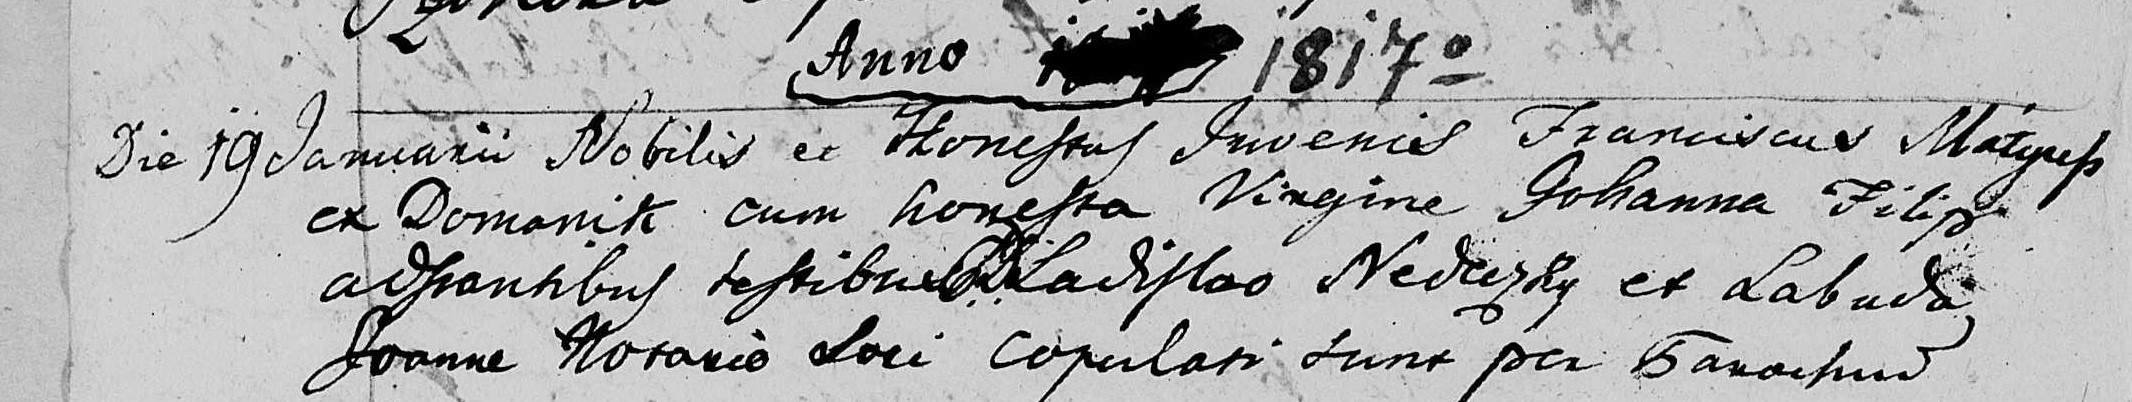 Anno 1817º
Die 19 Januarii Nobilis et Honestus Juvenis Franciscus Mátyus
ex Domanik cum honesta Virgine Johanna Filip
adstantibus testibus Ladislao Nedeczky et Labuda
Joanne Notario Loci copulati sunt per Parochum